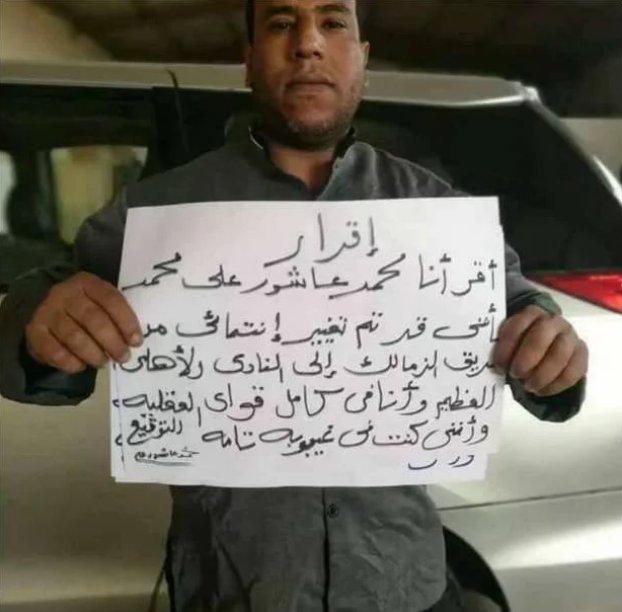 إقرار
أقر أنا محمد عاشور على محمد
بأننى قد تم تغيير إنتمائى من
فريق الزمالك إلى النادى الأهلى
العظيم وأنا فى كامل قواى العقليه
وأننى كنت فى غيبوبه تامه التوقيع
محمد عاشور على